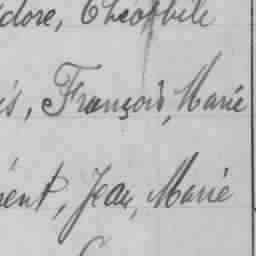 dore, Théophile
is, François, Marie
ent, Jean, Marie